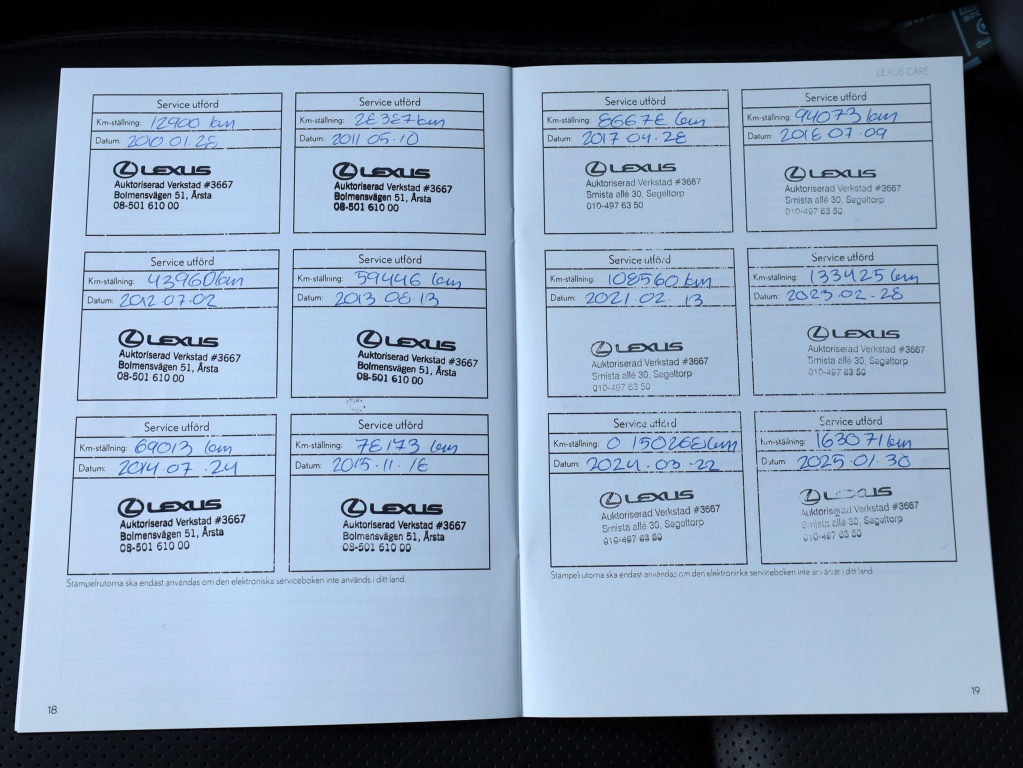 LEXUS CARE
Service utförd
Km-ställning: 12900 km
Datum: 2010.01.28
LEXUS
Auktoriserad Verkstad #3667
Bolmensvägen 51, Årsta
08-501 610 00
Service utförd
Km-ställning: 28387 km
Datum: 2011 05.10
LEXUS
Auktoriserad Verkstad #3667
Bolmensvägen 51, Årsta
08-501 610 00
Service utförd
Km-ställning: 43960 km
Datum: 2012.07.02
LEXUS
Auktoriserad Verkstad #3667
Bolmensvägen 51, Årsta
08-501 610 00
Service utförd
Km-ställning: 59446 km
Datum: 2013 08 13
LEXUS
Auktoriserad Verkstad #3667
Bolmensvägen 51, Årsta
08-501 610 00
Service utförd
Km-ställning: 69013 km
Datum: 2014.07.24
LEXUS
Auktoriserad Verkstad #3667
Bolmensvägen 51, Årsta
08-501 610 00
Service utförd
Km-ställning: 78173 km
Datum: 2015.11.18
LEXUS
Auktoriserad Verkstad #3667
Bolmensvägen 51, Årsta
08-501 610 00
Stämpelrutorna ska endast användas om den elektroniska serviceboken inte används i ditt land.
18
Service utförd
Km-ställning: 86678 km
Datum: 2017 04.28
LEXUS
Auktoriserad Verkstad #3667
Smista allé 30, Segeltorp
010-497 63 50
Service utförd
Km-ställning: 94073 km
Datum: 2018 07.09
LEXUS
Auktoriserad Verkstad #3667
Smista allé 30, Segeltorp
010-497 63 50
Service utförd
Km-ställning: 108560 km
Datum: 2021.02.13
LEXUS
Auktoriserad Verkstad #3667
Smista allé 30, Segeltorp
010-497 63 50
Service utförd
Km-ställning: 133425 km
Datum: 2023.02.28
LEXUS
Auktoriserad Verkstad #3667
Smista allé 30, Segeltorp
010-497 63 50
Service utförd
Km-ställning: km
Datum: 2024.03.22
LEXUS
Auktoriserad Verkstad #3667
Smista allé 30, Segeltorp
010-497 63 50
Service utförd
Km-ställning: 163071 km
Datum: 2025.01.30
LEXUS
Auktoriserad Verkstad #3667
Smista allé 30, Segeltorp
010-497 63 50
Stämpelrutorna ska endast användas om den elektroniska serviceboken inte används i ditt land.
19